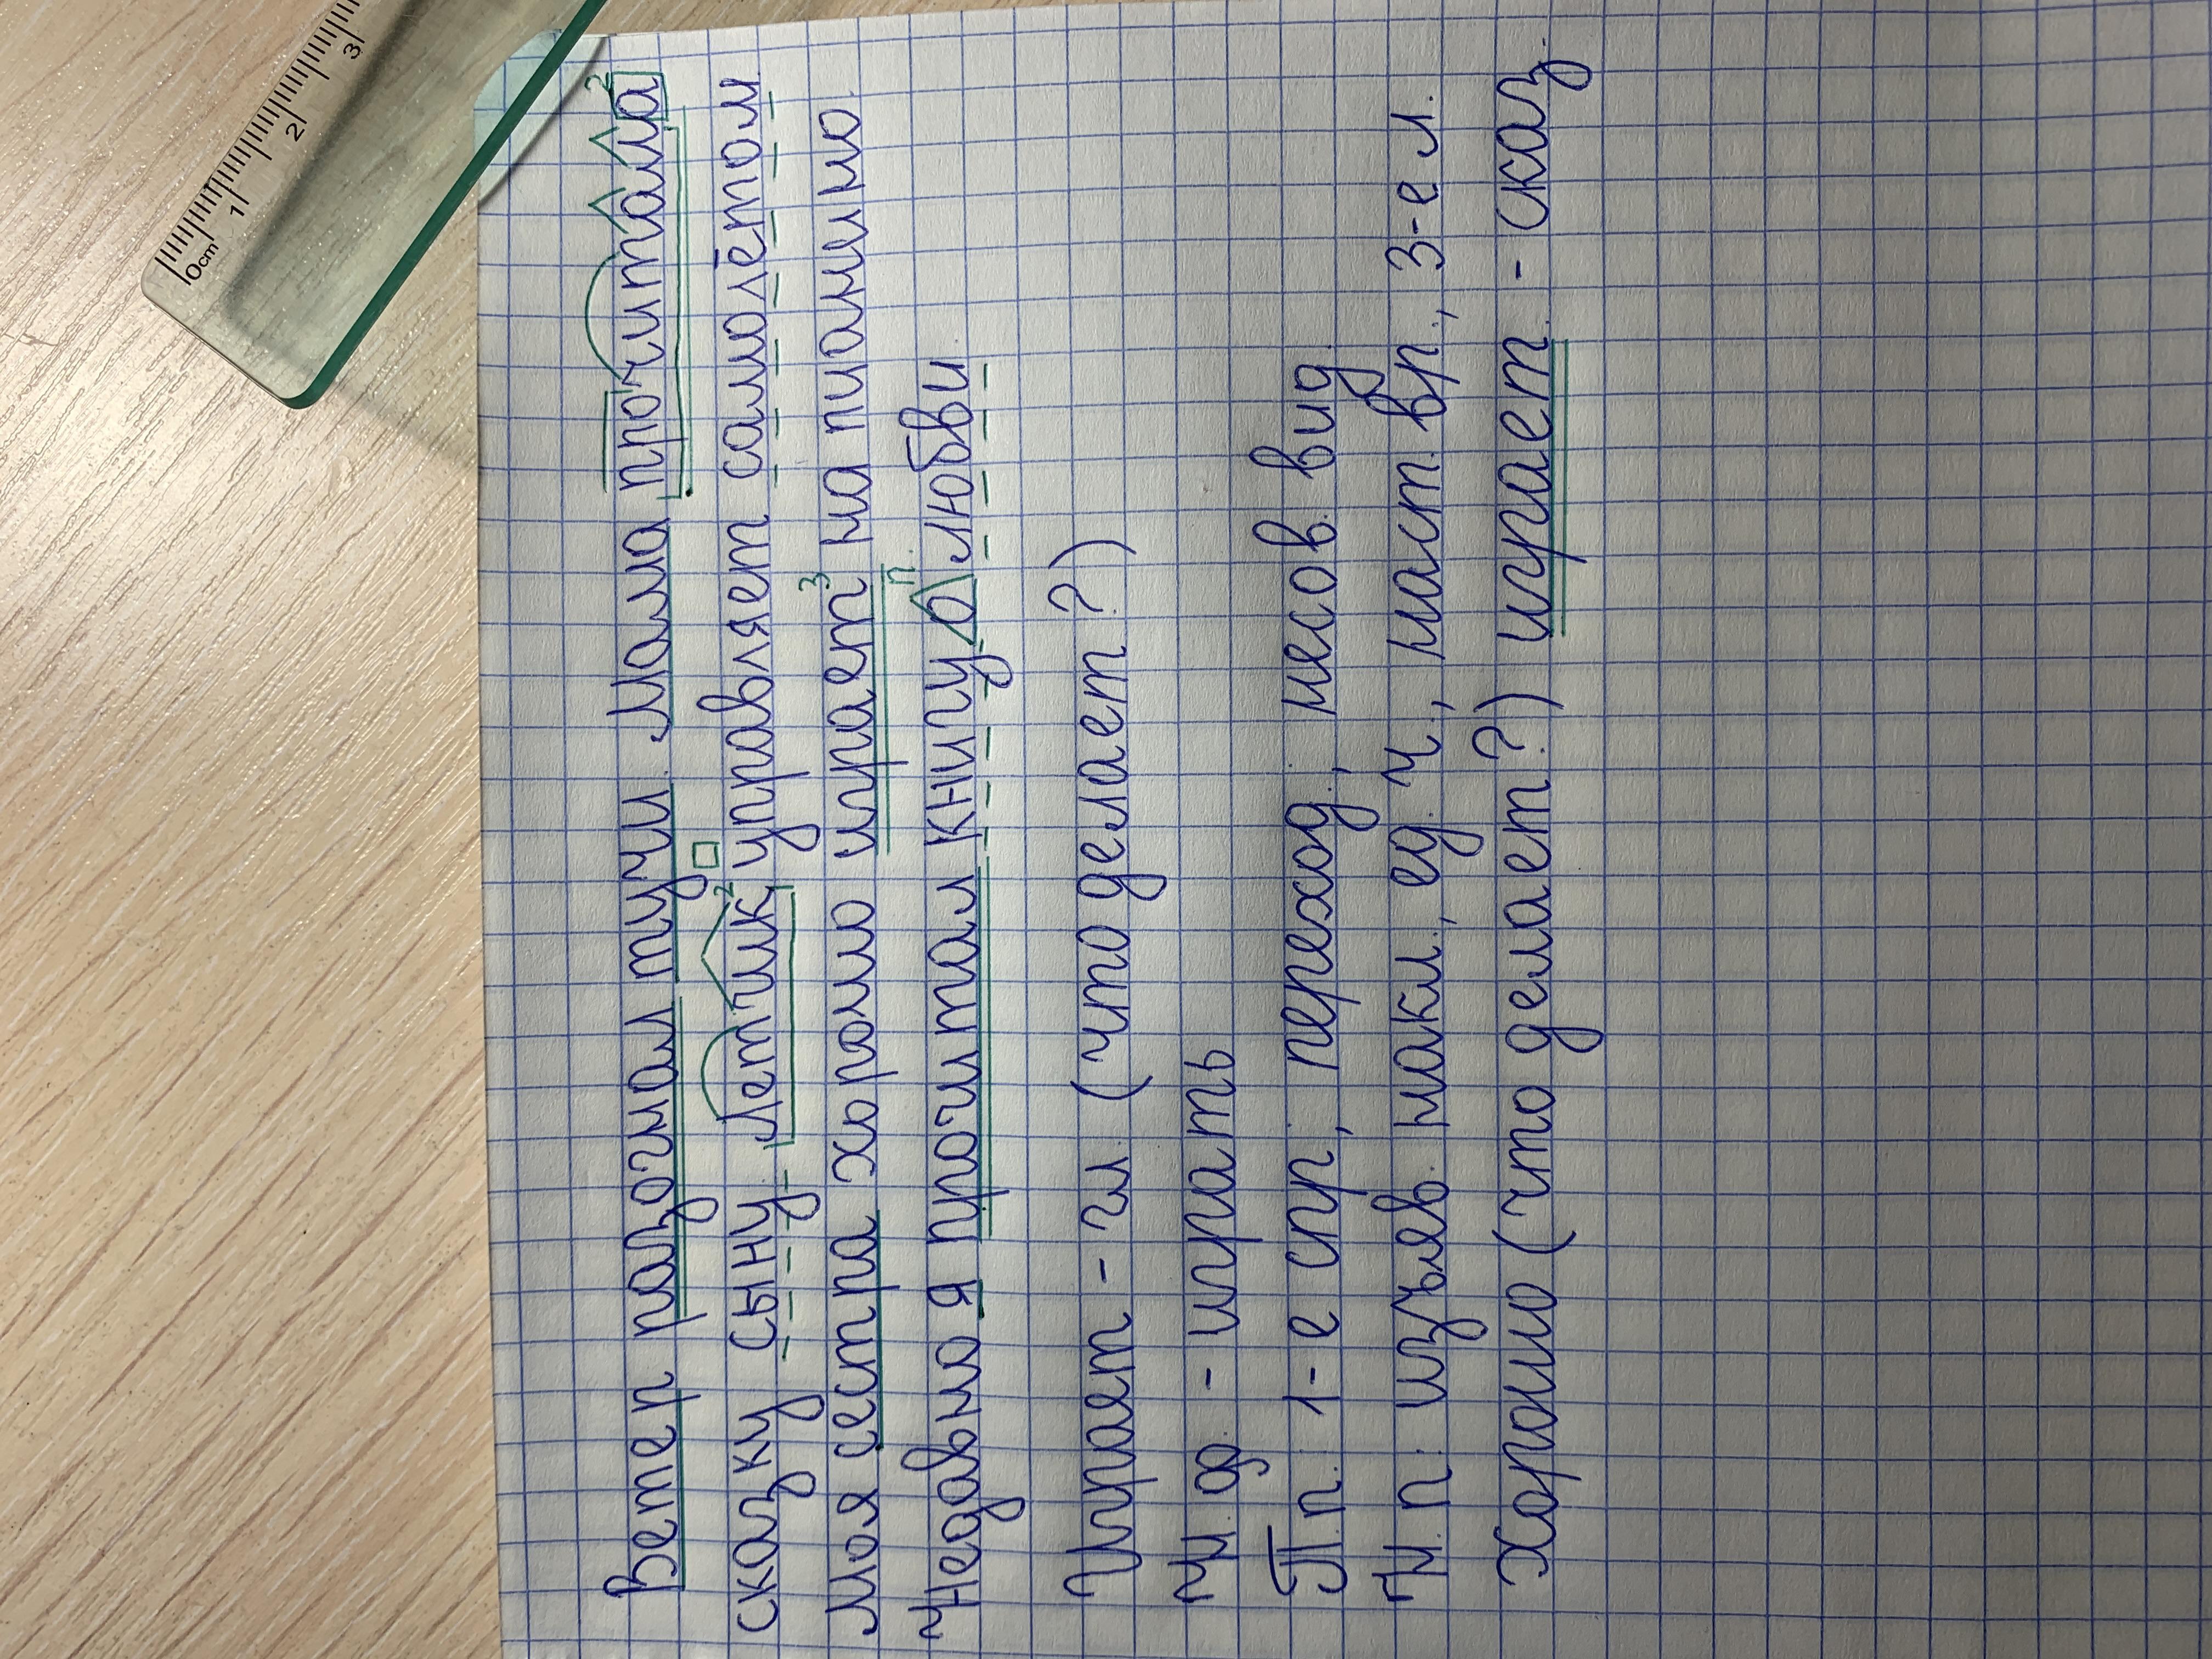 Ветер разогнал тучи. Мама прочитала²
сказку сыну. Летчик² управляет самолётом
Моя сестра хорошо играет³ на пианино.
Недавно я прочитал книгу о п. любви.
Играет - гл. (что делает?)
Н. ф. - играть
П.п. 1-е спр., переход., несов. вид.
Н. п.: изъяв. накл., ед. ч., наст. вр., 3-е л.
Хорошо (что делает?) играет. - сказ.
0cm 1 2 3